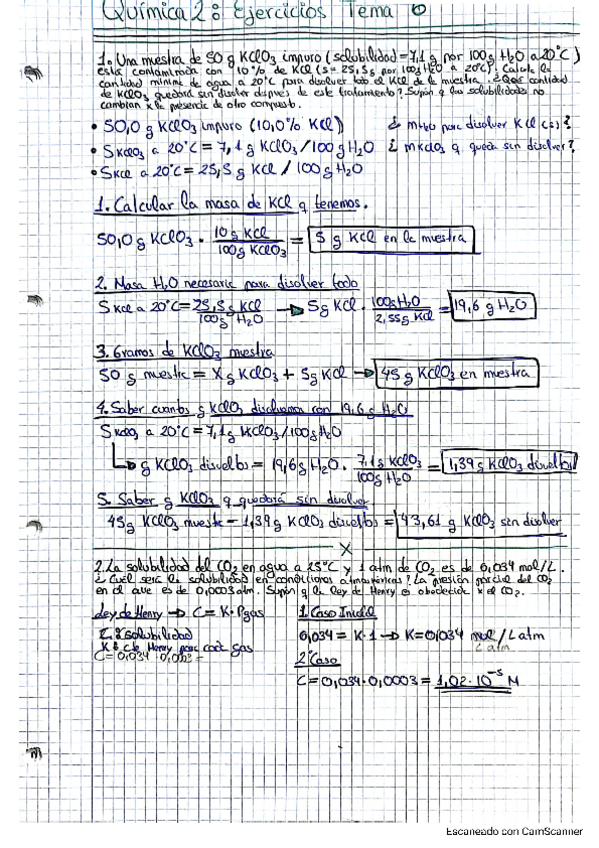 Química 2: Ejercicios Tema 6
1. Una muestra de 50 g KClO3 impuro (solubilidad = 7,1 g por 100g H2O a 20°C)
está contaminada con 10% de KCl (s = 25,5 g por 100g H2O a 20°C). Calcula la
cantidad mínima de agua a 20°C para disolver todo el KCl de la muestra. ¿Qué cantidad
de KClO3 quedará sin disolver después de este tratamiento? Supón q las solubilidades no
cambian x la presencia de otro compuesto.
• 50,0 g KClO3 impuro (10,0% KCl) ¿ mH2O para disolver KCl (s)?
• SKClO3 a 20°C = 7,1 g KClO3 / 100 g H2O ¿ mKClO3 q queda sin disolver?
• SKCl a 20°C = 25,5 g KCl / 100 g H2O
1. Calcular la masa de KCl q tenemos.
50,0 g KClO3 · 10 g KCl / 100 g KClO3 = 5 g KCl en la muestra
2. Masa H2O necesaria para disolver todo
SKCl a 20°C = 25,5 g KCl / 100 g H2O → 5 g KCl · 100g H2O / 2,55g KCl = 19,6 g H2O
3. Gramos de KClO3 muestra
50 g muestra = X g KClO3 + 5 g KCl → 45 g KClO3 en muestra
4. Saber cuantos g KClO3 disolvemos con 19,6 g H2O
SKClO3 a 20°C = 7,1 g KClO3 / 100 g H2O
↳ g KClO3 disueltos = 19,6 g H2O · 7,1 g KClO3 / 100g H2O = 1,39 g KClO3 disueltos
5. Saber g KClO3 q quedará sin disolver
45g KClO3 muestra - 1,39 g KClO3 disueltos = 43,61 g KClO3 sin disolver
X
2. La solubilidad del CO2 en agua a 25°C y 1 atm de CO2 es de 0,034 mol/L.
¿Cuál será la solubilidad en condiciones atmosféricas? La presión parcial del CO2
en el aire es de 0,0003 atm. Supón q la ley de Henry es obedecida x el CO2.
Ley de Henry → C = K · Pgas 1º Caso Inicial
C: solubilidad 0,034 = K · 1 → K = 0,034 mol / L atm
K: cte Henry para cada gas L atm
C = 0,034 · 0,0003 = 2º Caso
C = 0,034 · 0,0003 = 1,02 · 10^-5 M
Escaneado con CamScanner